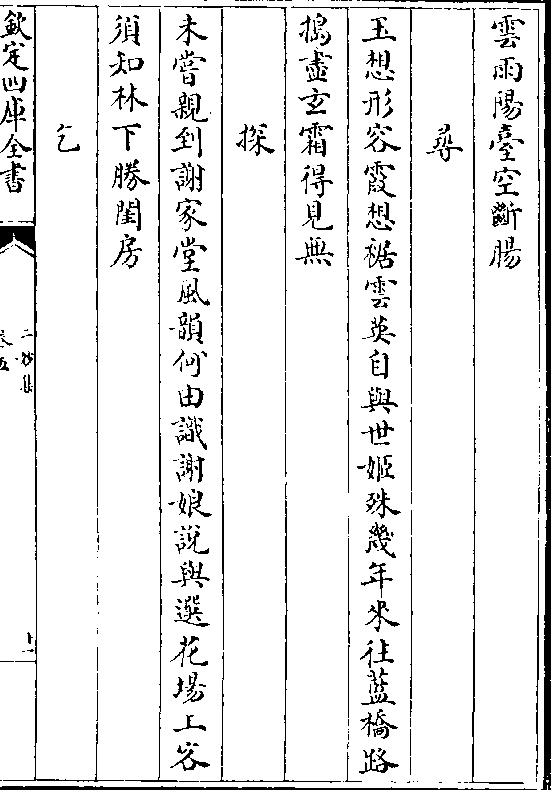 雲雨陽臺空斷腸
尋
玉想形容霞想裾雲英自與世姬殊幾年來往藍橋路
搗盡玄霜得見無
探
未嘗親到謝家堂風韻何由識謝娘說與選花場上客
須知林下勝閨房
乞
欽定四庫全書
二妙集
卷五
十一